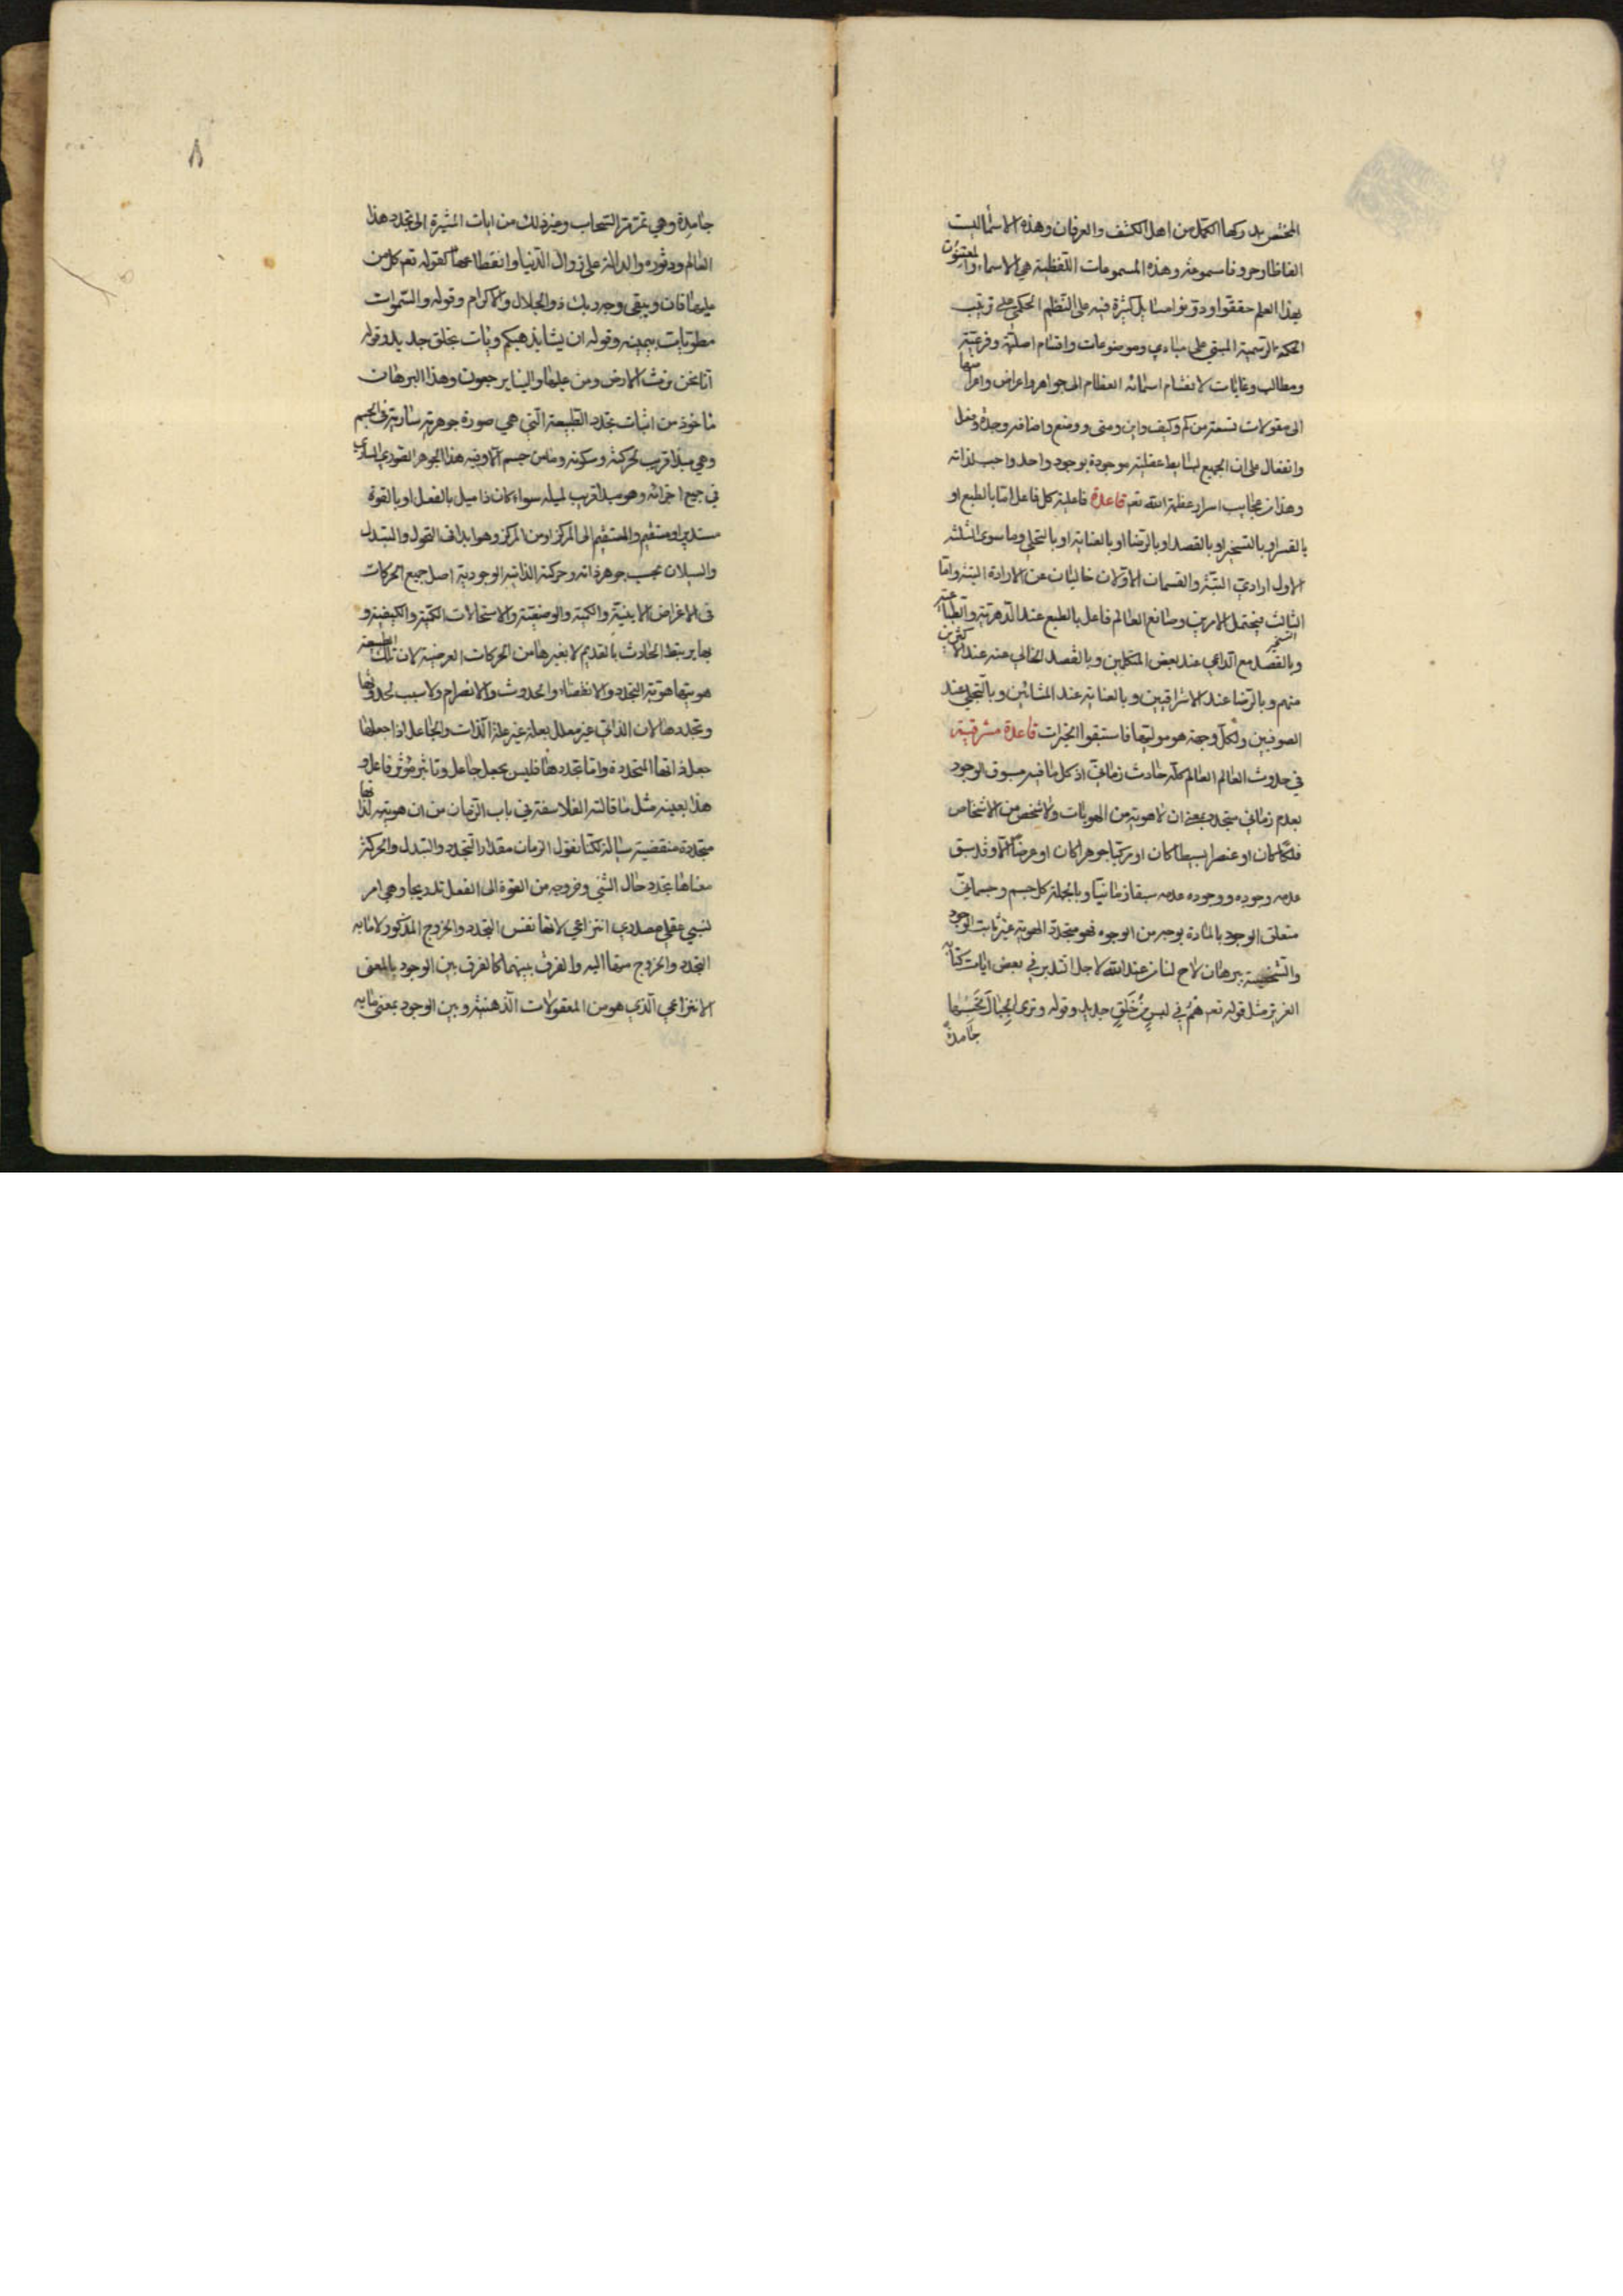 المختص بدركها الكمل من اهل الكشف والعرفان وهذه الاسماء ليست
الفاظا وحروفا مسموعة وهذه المسموعات اللفظية هي الاسماء والمعتنون
بهذا العلم حققوا ودونوا مسايل كثيرة فيه على النظم الحكمي على ترتيب
الحكمة الرسمية المبتني على مبادي وموضوعات واقسام اصلية وفرعية
ومطالب وغايات لانقسام اسمائه العظام الى جواهر واعراض واعراضها
الى مقولات تسعة من كم وكيف واين ومتى ووضع واضافة وجدة وفعل
وانفعال على ان الجميع بسايط عقلية موجودة بوجود واحد واجب لذاته
وهذا من عجايب اسرار عظمة الله تعم قاعدة فاعلية كل فاعل اما بالطبع او
بالقسر او بالتسخير او بالقصد او بالرضا او بالعناية او بالتجلي وما سوى الثلثة
الاول ارادي البتة والقسمان الاولان خاليان عن الارادة البتة واما
الثالث فيحتمل الامرين وصانع العالم فاعل بالطبع عند الدهرية والطباعية
وبالقصد مع الداعي عند بعض المتكلمين وبالقصد الخالي عنه عند الاكثرين
منهم وبالرضا عند الاشراقيين وبالعناية عند المشائين وبالتجلي عند
الصوفيين ولكل وجهة هو موليها فاستبقوا الخيرات قاعدة مشرقية
في حدوث العالم العالم كله حادث زماني اذ كل ما فيه مسبوق الوجود
بعدم زماني متجدد بمعنى ان لا هوية من الهويات ولا شخص من الاشخاص
فلكا كان او عنصرا بسيطا كان او مركبا جوهرا كان او عرضا الا وقد سبق
عدمه وجوده ووجوده عدمه سبقا زمانيا وبالجملة كل جسم وجسماني
متعلق الوجود بالمادة بوجه من الوجوه فهو متجدد الهوية غير ثابت الوجود
والشخصية ببرهان لاح لنا من عند الله لاجل التدبر في بعض ايات كتابه
العزيز مثل قوله تعم هم في لبس من خلق جديد وقوله وترى الجبال تحسبها
جامدة
٨
جامدة وهي تمر مر السحاب وغير ذلك من ايات المشيرة الى تجدد هذا
العالم ودثوره والدالة على زوال الدنيا وانقطاعها كقوله تعم كل من
عليها فان ويبقى وجه ربك ذو الجلال والاكرام وقوله والسموات
مطويات بيمينه وقوله ان يشا يذهبكم ويات بخلق جديد وقوله
انا نحن نرث الارض ومن عليها والينا يرجعون وهذا البرهان
ماخوذ من اثبات تجدد الطبيعة التي هي صورة جوهرية سارية في الجسم
وهي مبدا قريب لحركته وسكونه وما من جسم الا وفيه هذا الجوهر الصوري الساري
في جميع اجزائه وهو مبدا قريب لميله سواء كان ذا ميل بالفعل او بالقوة
مستدير او مستقيم والمستقيم الى المركز او من المركز وهو ابدا في التحول والتبدل
والسيلان بحسب جوهر ذاته وحركته الذاتية الوجودية اصل جميع الحركات
في الاعراض الاينية والكمية والوضعية والاستحالات الكمية والكيفية و
بها يرتبط الحادث بالقديم لا بغيرها من الحركات العرضية لان تلك الطبيعة
هويتها هوية التجدد والانقضاء والحدوث والانصرام ولا سبب لحدوثها
وتجددها لان الذاتي غير معلل بعلة غير علة الذات والجاعل اذا جعلها
جعل ذاتها المتجددة واما تجددها فليس بجعل جاعل وتاثير مؤثر فاعل و
هذا بعينه مثل ما قالته الفلاسفة في باب الزمان من ان هويته لذاتها
متجددة منقضية سيالة لكنا نقول الزمان مقدار التجدد والتبدل والحركة
معناها تجدد حال الشئ وخروجه من القوة الى الفعل تدريجا وهي امر
نسبي عقلي مصدري انتزاعي لانها نفس التجدد والخروج المذكور لا ما به
التجدد والخروج منها اليه والفرق بينهما كالفرق بين الوجود بالمعنى
الانتزاعي الذي هو من المعقولات الذهنية وبين الوجود بمعنى ما به